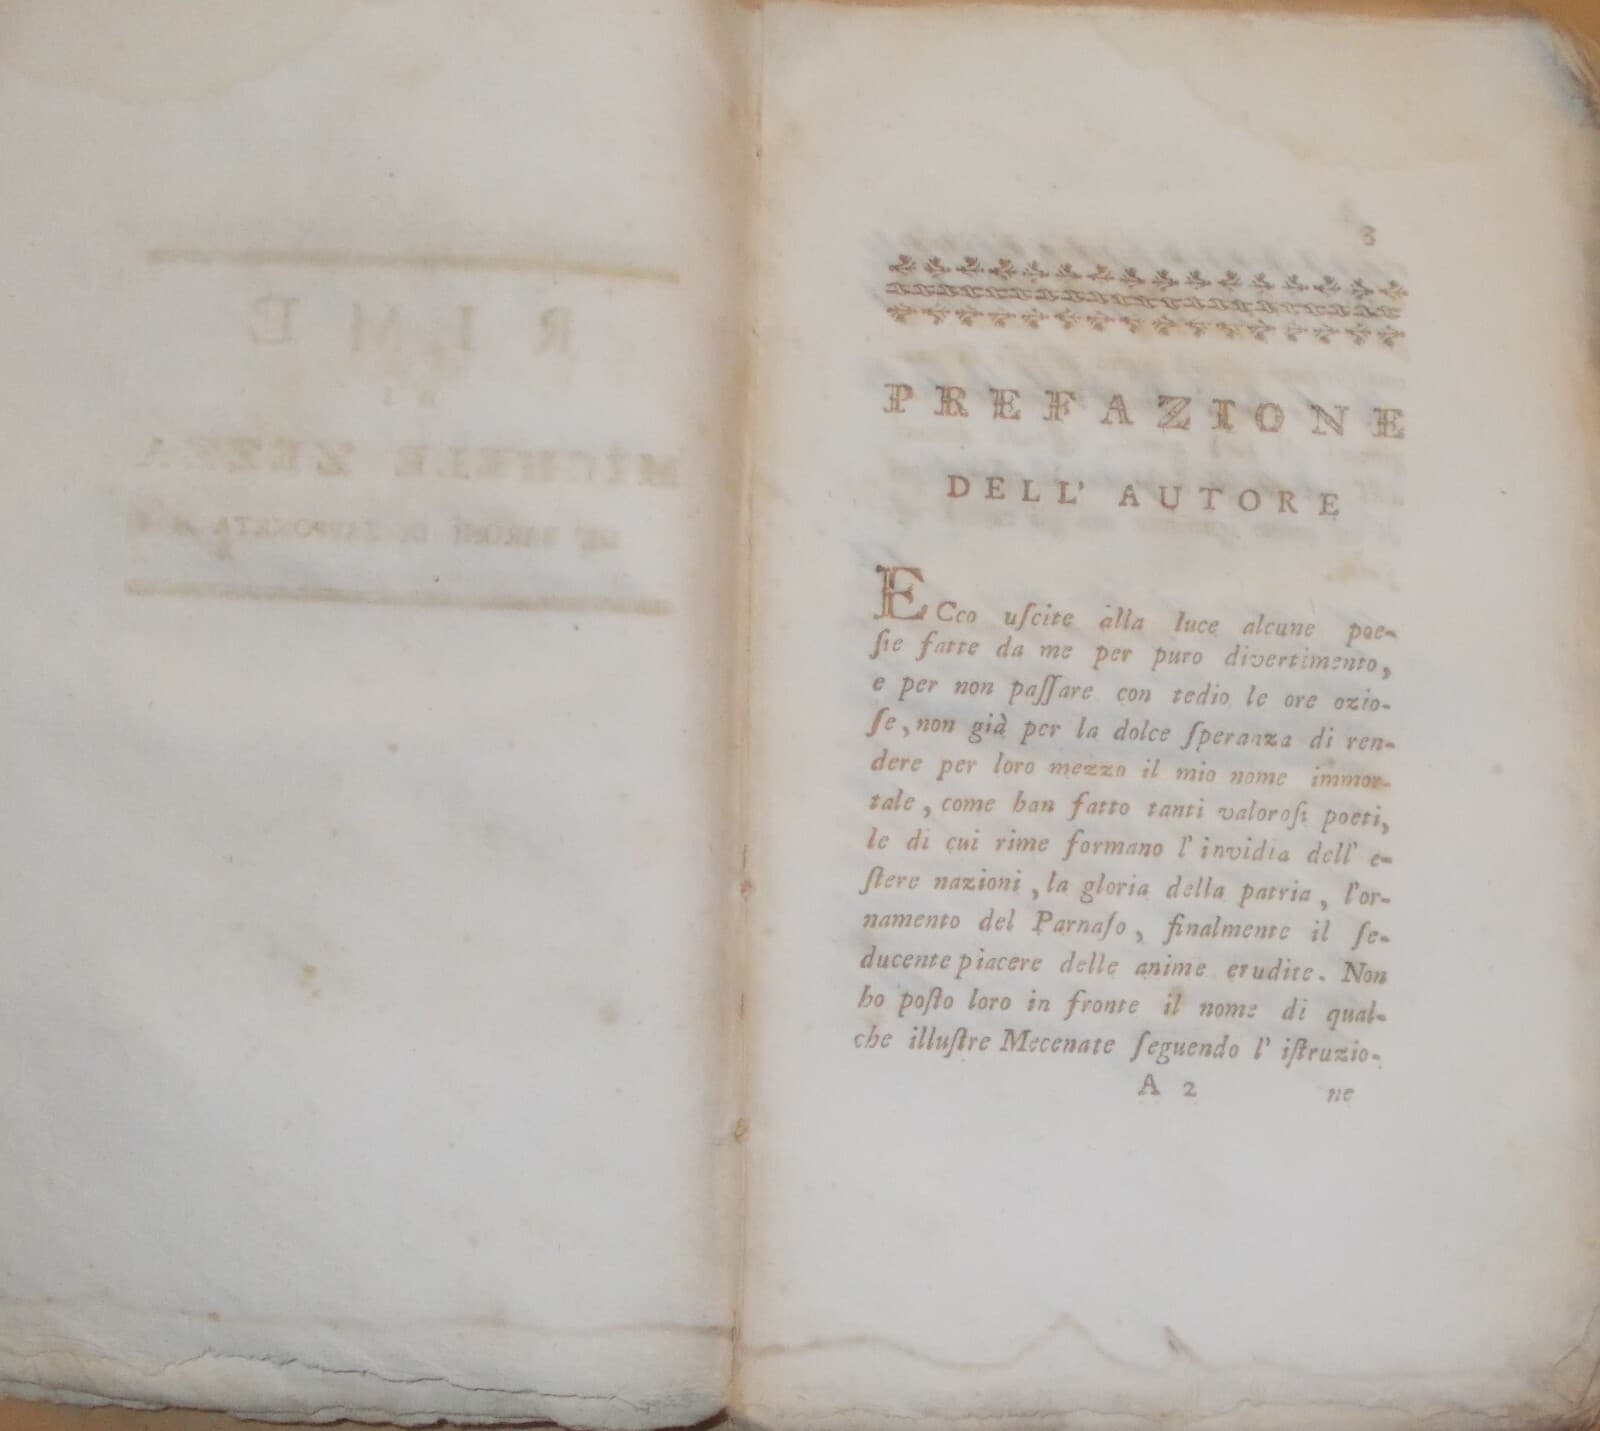 RIME
DI
MICHELE ZEZZA
DE' BARONI DI ZAPPONETA
3
PREFAZIONE
DELL' AUTORE
ECco uſcite alla luce alcune poe-
ſie fatte da me per puro divertimento,
e per non paſſare con tedio le ore ozio-
ſe, non già per la dolce ſperanza di ren-
dere per loro mezzo il mio nome immor-
tale, come han fatto tanti valoroſi poeti,
le di cui rime formano l'invidia dell' e-
ſtere nazioni, la gloria della patria, l'or-
namento del Parnaſo, finalmente il ſe-
ducente piacere delle anime erudite. Non
ho poſto loro in fronte il nome di qual-
che illuſtre Mecenate ſeguendo l' iſtruzio-
A 2 ne